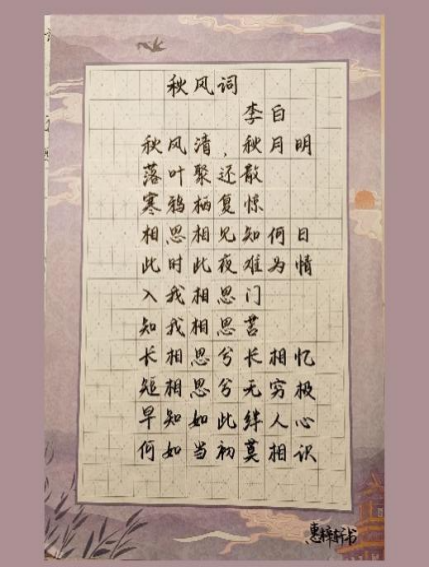 秋风词
李白
秋风清，秋月明
落叶聚还散
寒鸦栖复惊
相思相见知何日
此时此夜难为情
入我相思门
知我相思苦
长相思兮长相忆
短相思兮无穷极
早知如此绊人心
何如当初莫相识